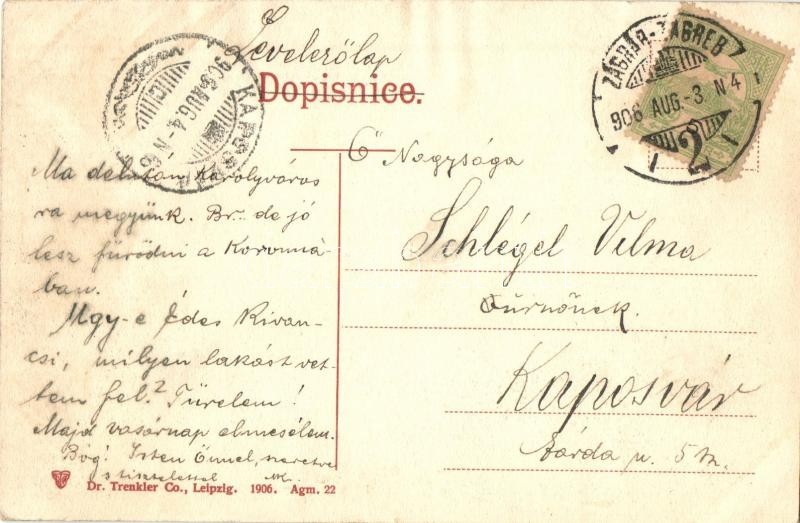 Levelezőlap
Dopisnice.
ZÁGRÁB-ZAGREB
906 AUG.-3. N 4
2
906 AUG.-4. N 6
Ő Nagysága
Schlégel Vilma
Úrnőnek.
Kaposvár
Zárda u. 5 sz.
Ma délután Károlyváros
ra megyünk. Br... de jó
lesz fürödni a Koroná-
ban.
Ugy-e Édes Kiván-
csi, milyen lakást vet-
tem fel? Türelem!
Majd vasárnap elmesélem.
Bog! Isten Önnel, szeretve
s tisztelettel
Dr. Trenkler Co., Leipzig. 1906. Agm. 22